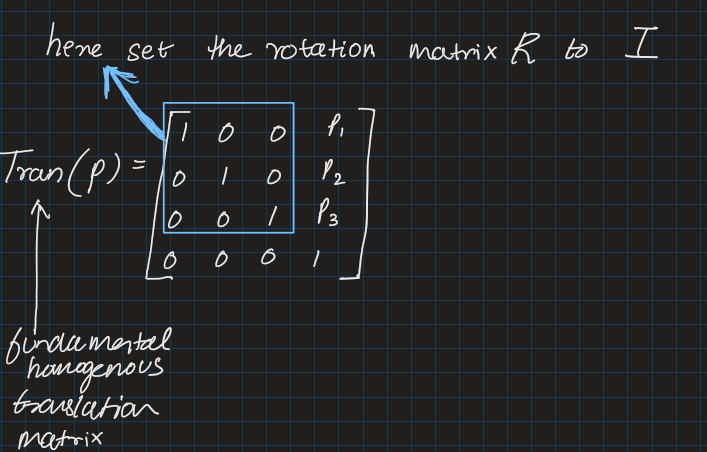 here set the rotation matrix R to I
Tran(p) =
1 0 0 P1
0 1 0 P2
0 0 1 P3
0 0 0 1
fundamental
homogenous
translation
matrix